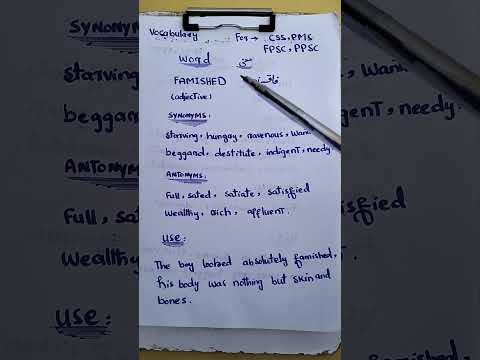 Vocabulary For → CSS, PMS
FPSC, PPSC
word معنی
FAMISHED
(adjective)
SYNONYMS:
starving, hungry, ravenous, want
beggard, destitute, indigent, needy.
ANTONYMS:
Full, sated, satiate, satisfied
wealthy, rich, affluent.
USE:
The boy looked absolutely famished,
his body was nothing but skin and
bones.